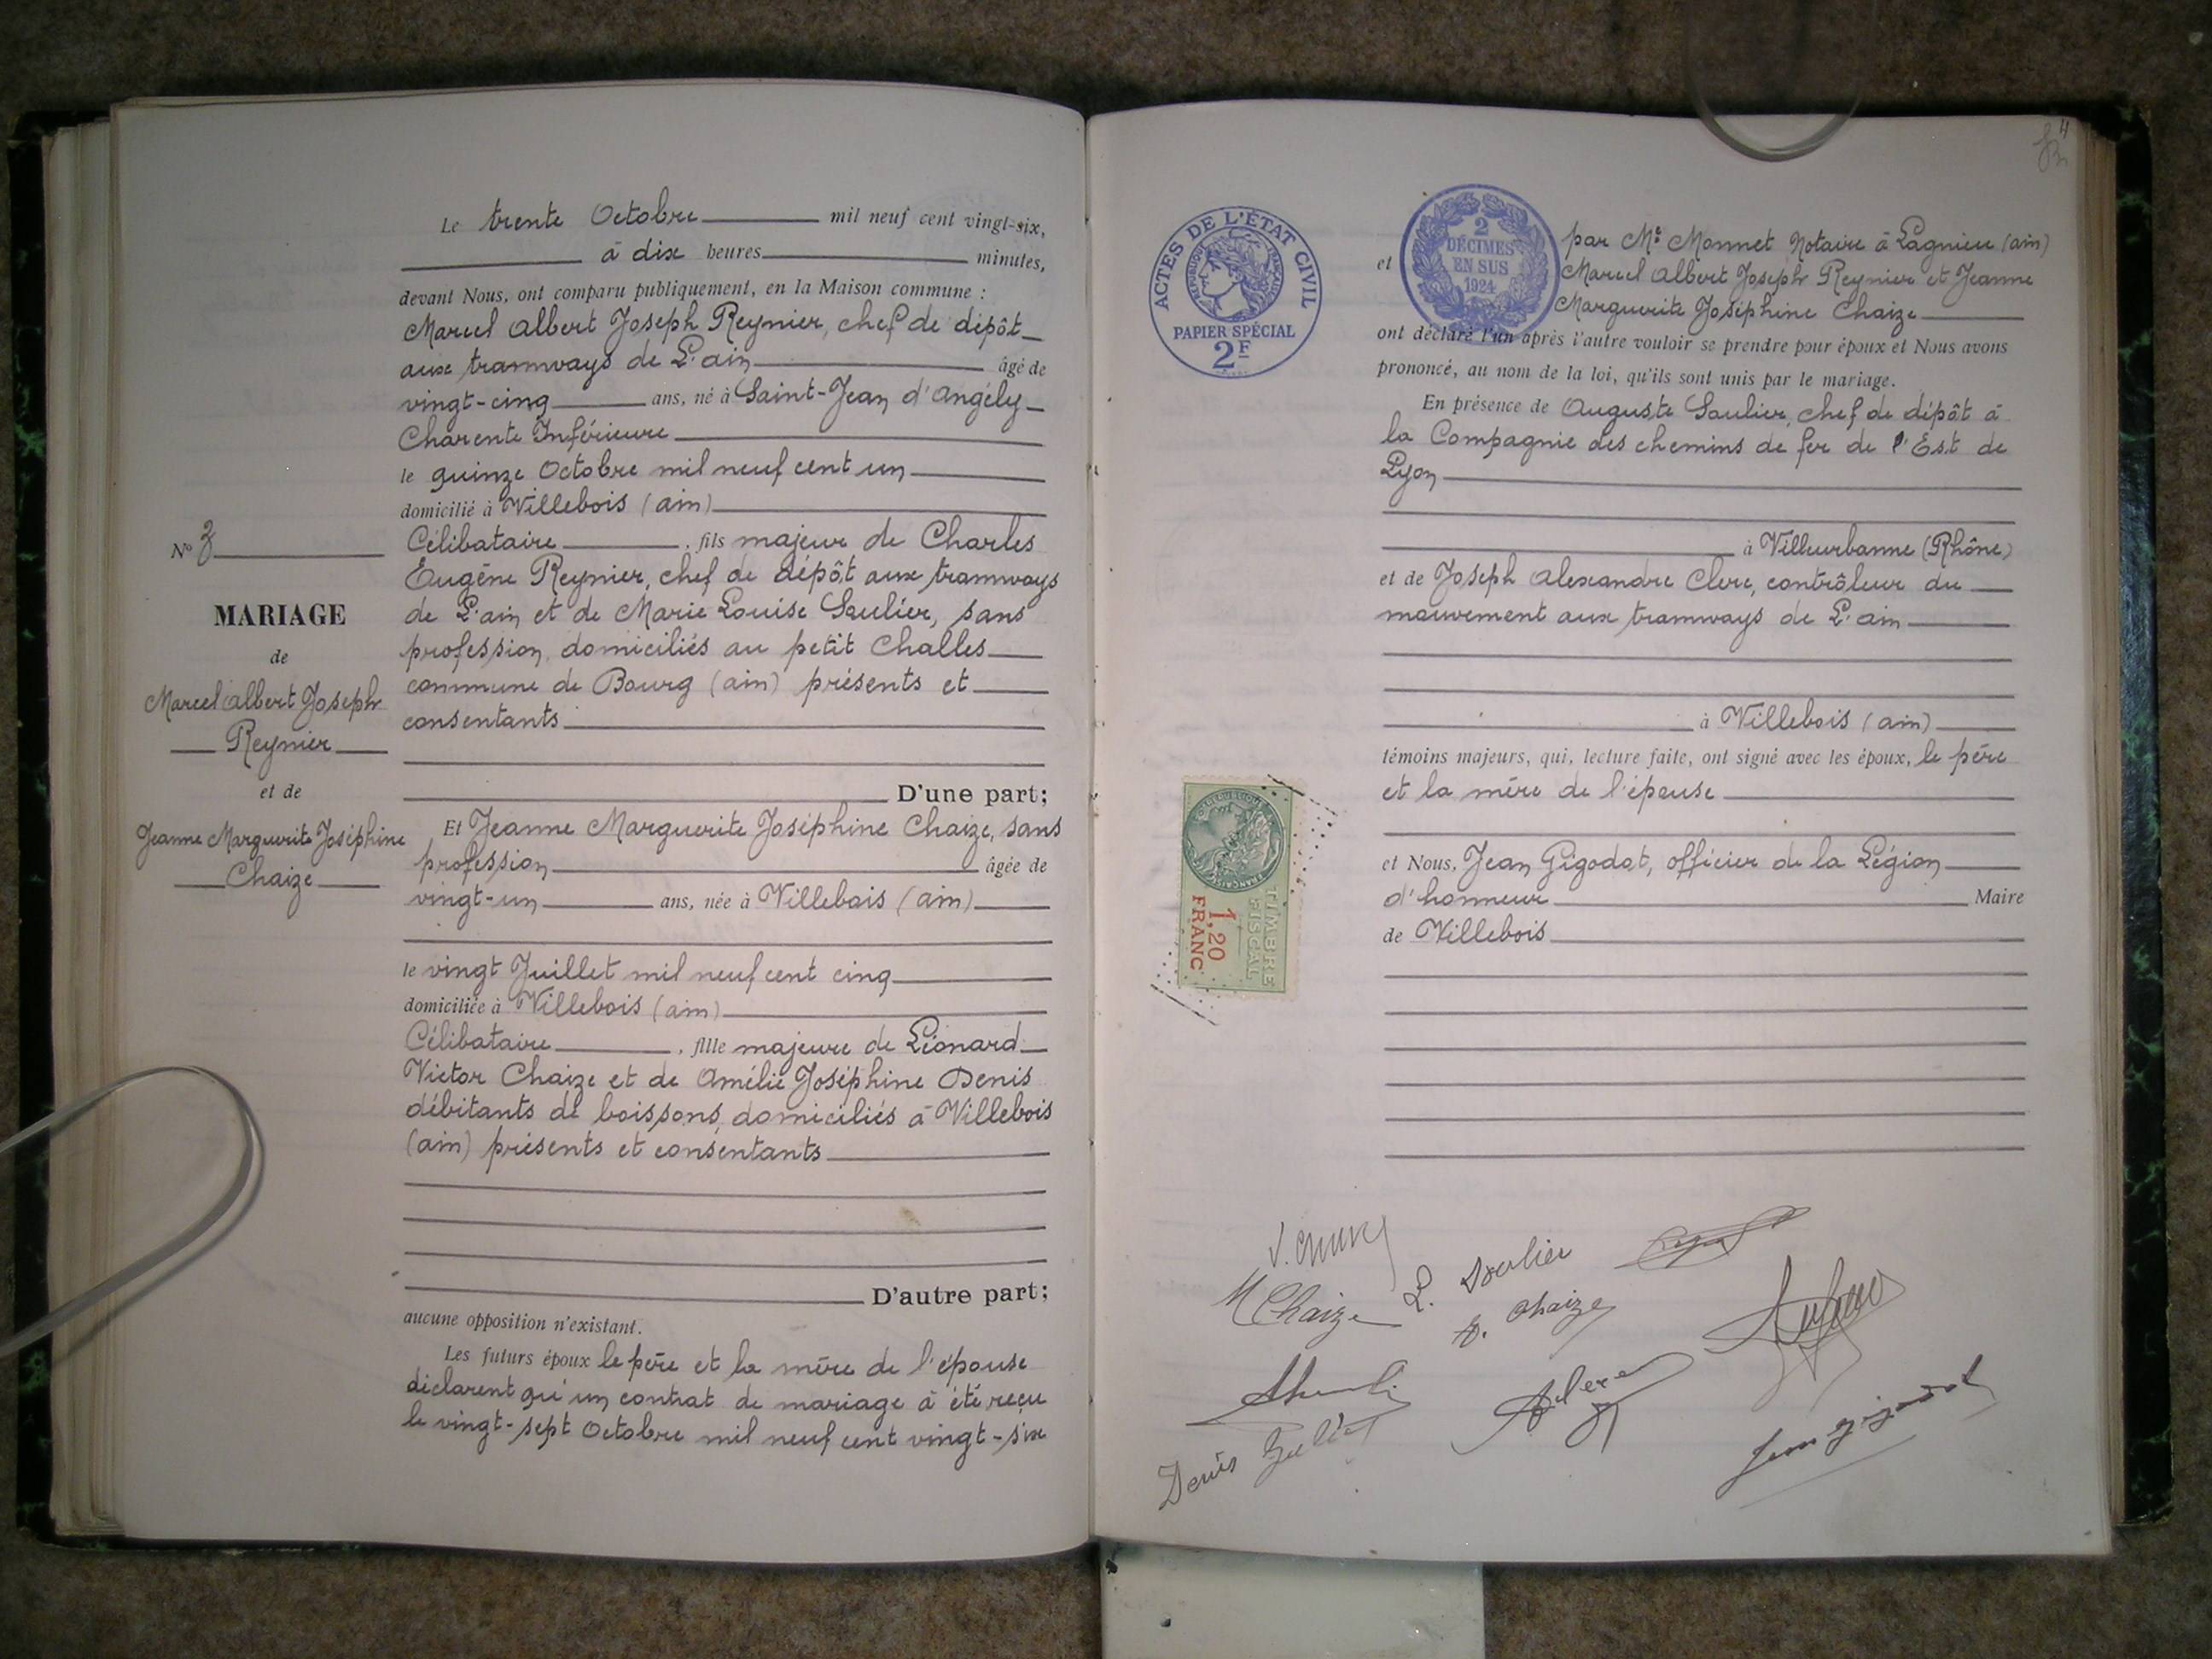 Le trente Octobre mil neuf cent vingt-six,
à dix heures minutes,
devant Nous, ont comparu publiquement, en la Maison commune :
Marcel Albert Joseph Reynier, chef de dépôt
aux tramways de L'ain âgé de
vingt-cinq ans, né à Saint-Jean d'Angély
Charente Inférieure
le quinze Octobre mil neuf cent un
domicilié à Villebois (ain)
Célibataire, fils majeur de Charles
Eugène Reynier, chef de dépôt aux tramways
de L'ain et de Marie Louise Saulier, sans
profession, domiciliés au petit Challes
commune de Bourg (ain) présents et
consentants
D'une part;
Et Jeanne Marguerite Joséphine Chaize, sans
profession âgée de
vingt-un ans, née à Villebois (ain)
le vingt Juillet mil neuf cent cinq
domiciliée à Villebois (ain)
Célibataire, fille majeure de Léonard
Victor Chaize et de Amélie Joséphine Denis
débitants de boissons, domiciliés à Villebois
(ain) présents et consentants
D'autre part;
aucune opposition n'existant.
Les futurs époux le père et la mère de l'épouse
déclarent qu'un contrat de mariage à été reçu
le vingt-sept Octobre mil neuf cent vingt-six
No 3
MARIAGE
de
Marcel Albert Joseph
Reynier
et de
Jeanne Marguerite Joséphine
Chaize
4
ACTES DE L'ÉTAT CIVIL
RÉPUBLIQUE FRANÇAISE
PAPIER SPÉCIAL
2F
2
DÉCIMES
EN SUS
1924
par Me Monnet Notaire à Lagnieu (ain)
et Marcel Albert Joseph Reynier et Jeanne
Marguerite Joséphine Chaize
ont déclaré l'un après l'autre vouloir se prendre pour époux et Nous avons
prononcé, au nom de la loi, qu'ils sont unis par le mariage.
En présence de Auguste Saulier, chef de dépôt à
la Compagnie des chemins de fer de l'Est de
Lyon
à Villeurbanne (Rhône)
et de Joseph Alexandre Clerc, contrôleur du
mouvement aux tramways de L'ain
à Villebois (ain)
témoins majeurs, qui, lecture faite, ont signé avec les époux, le père
et la mère de l'épouse
et Nous, Jean Gigodot, officier de la Légion
d'honneur Maire
de Villebois
RÉPUBLIQUE FRANÇAISE
TIMBRE
FISCAL
1,20
FRANC
M Chaize
L. Saulier
Chaize
Denis
Jean Gigodot